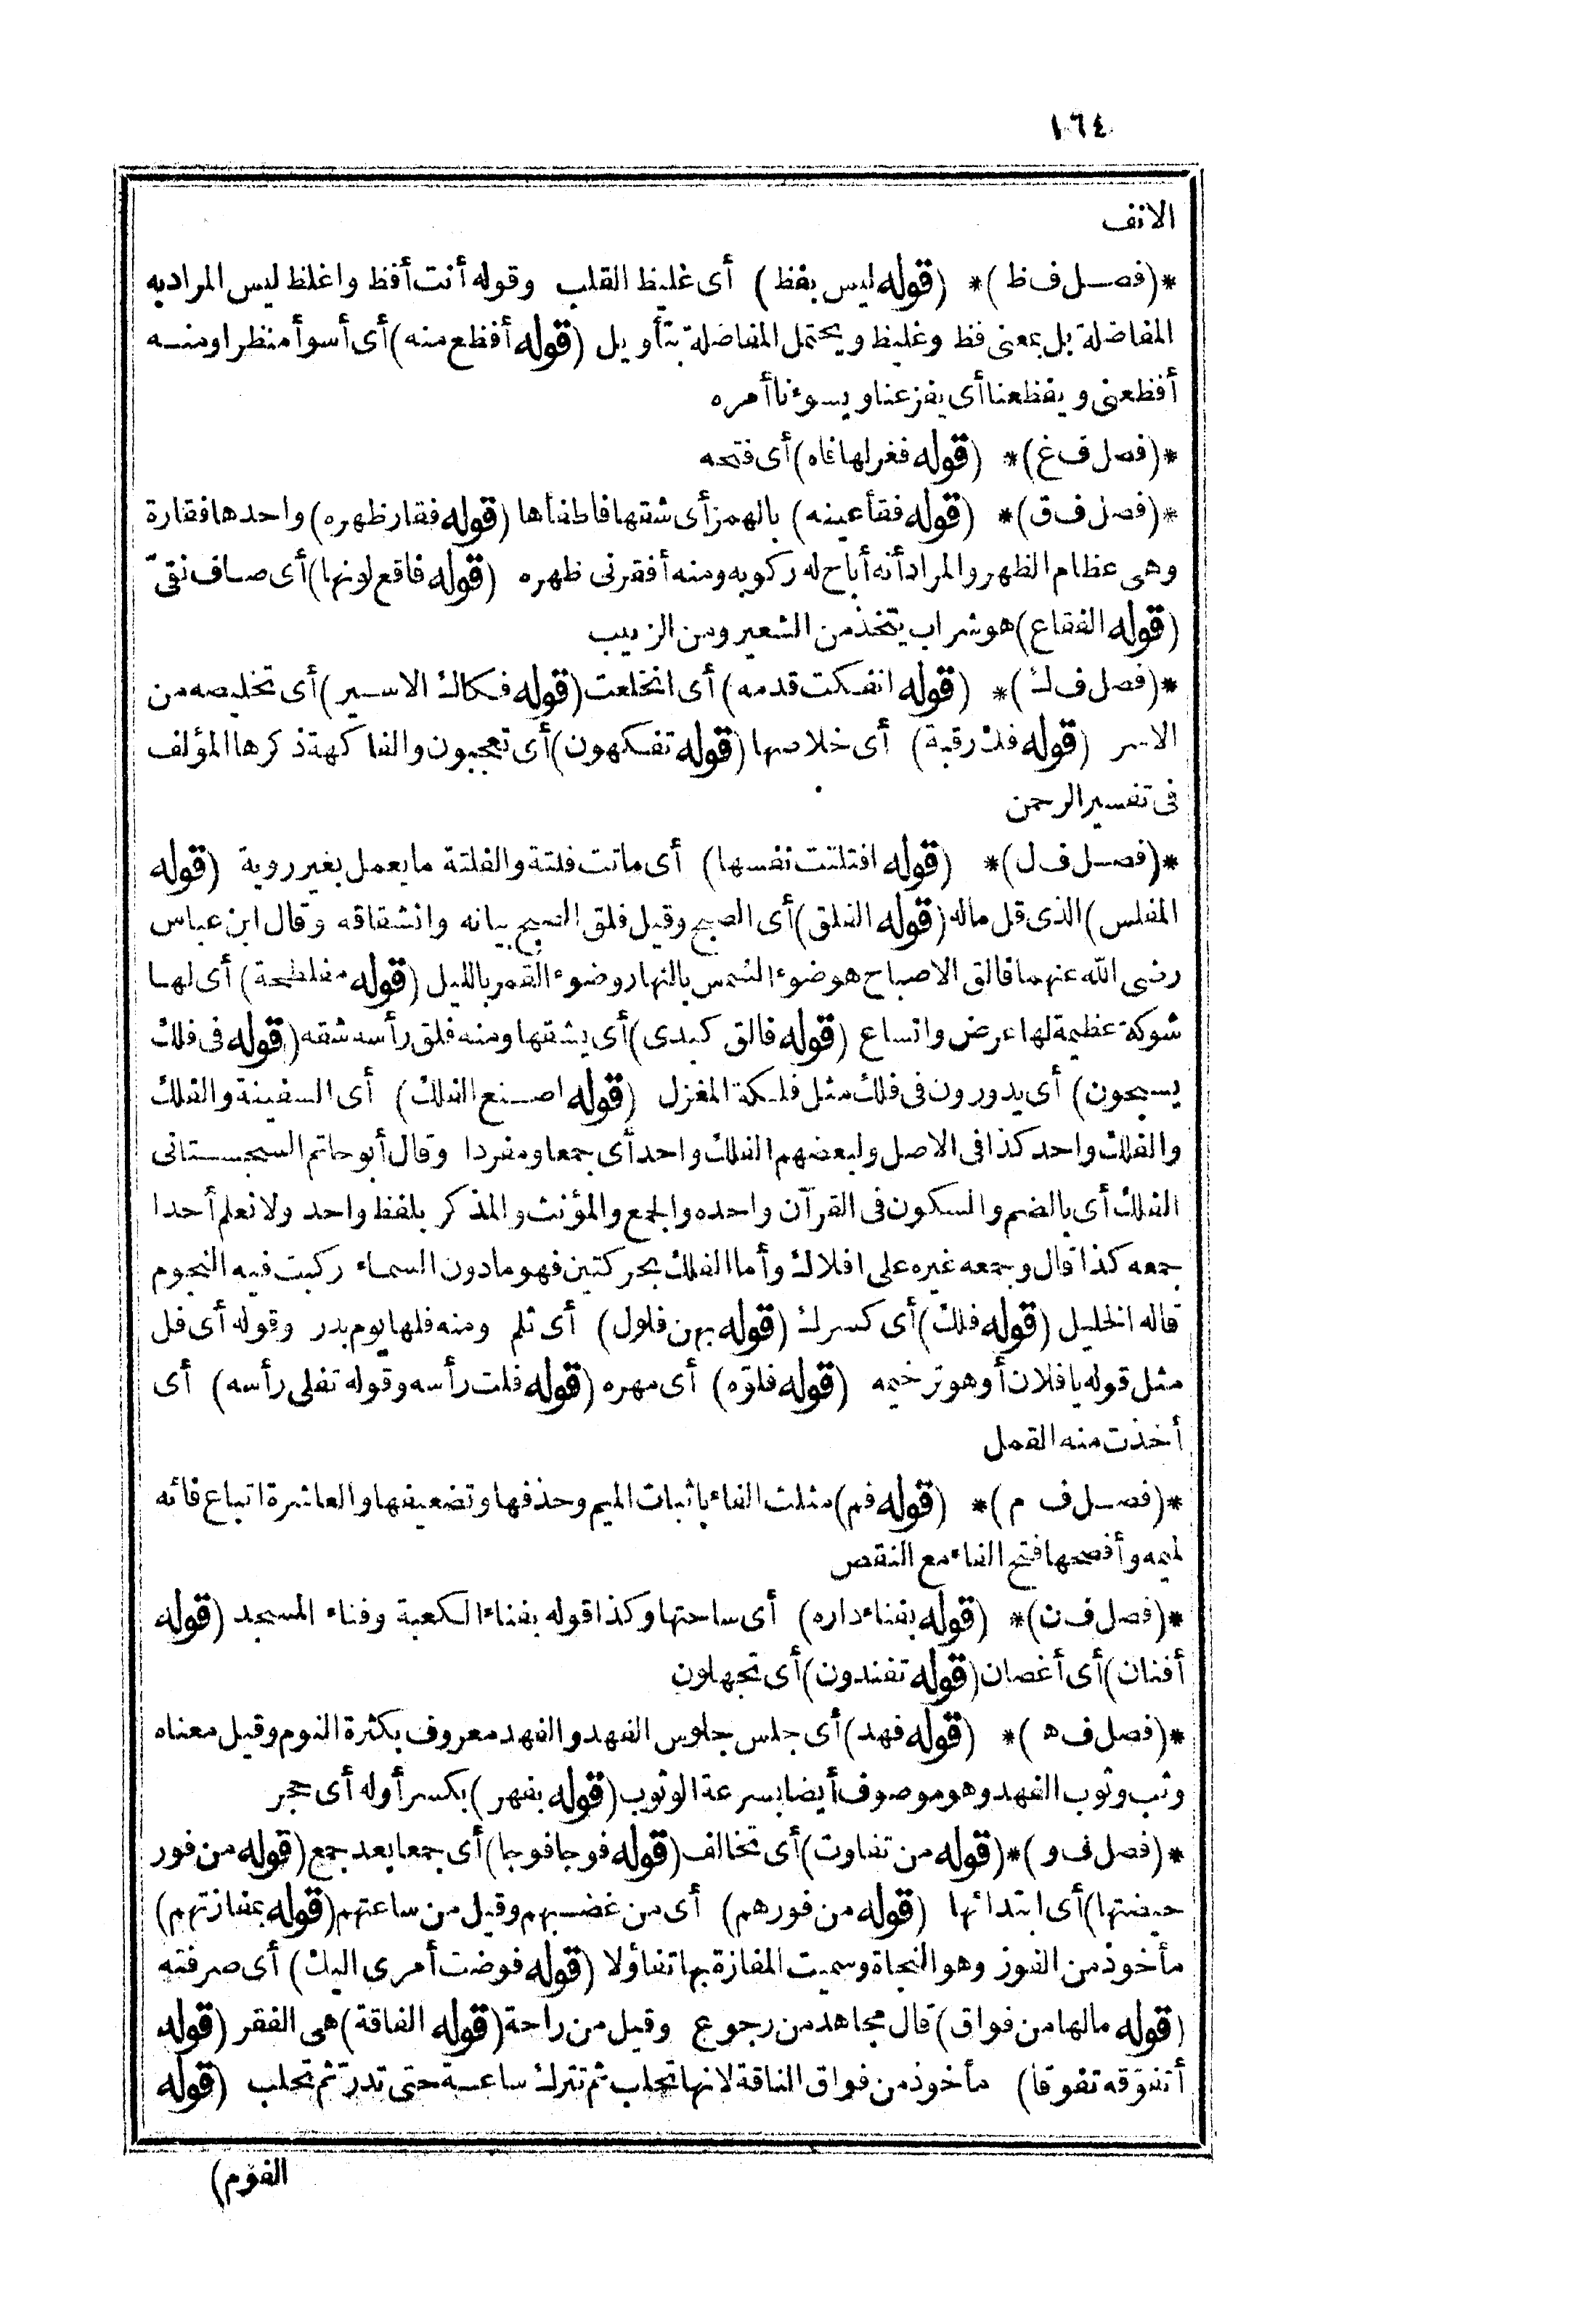 ١٦٤
الانف
*(فصل ف ظ)* (قوله ليس بفظ) أى غليظ القلب وقوله أنت أفظ واغلظ ليس المراد به
المفاضلة بل بمعنى فظ وغليظ ويحتمل المفاضلة بتأويل (قوله أفظع منه) أى أسوأ منظرا ومنه
أفظعنى ويفظعنا أى يفزعنا ويسوءنا أمره
*(فصل ف غ)* (قوله فغر لها فاه) أى فتحه
*(فصل ف ق)* (قوله فقأ عينه) بالهمز أى شقها فاطفأها (قوله فقار ظهره) واحدها فقارة
وهى عظام الظهر والمراد أنه أباح له ركوبه ومنه أفقرنى ظهره (قوله فاقع لونها) أى صاف نقىّ
(قوله الفقاع) هو شراب يتخذ من الشعير ومن الزبيب
*(فصل ف ك)* (قوله انفكت قدمه) أى انخلعت (قوله فكاك الاسير) أى تخليصه من
الاسر (قوله فك رقبة) أى خلاصها (قوله تفكهون) أى تعجبون والفاكهة ذكرها المؤلف
فى تفسير الرحمن
*(فصل ف ل)* (قوله افتلتت نفسها) أى ماتت فلتة والفلتة ما يعمل بغير روية (قوله
المفلس) الذى قل ماله (قوله الفلق) أى الصبح وقيل فلق الصبح بيانه وانشقاقه وقال ابن عباس
رضى الله عنهما فالق الاصباح هو ضوء الشمس بالنهار وضوء القمر بالليل (قوله مفلطحة) أى لها
شوكة عظيمة لها عرض واتساع (قوله فالق كبدى) أى يشقها ومنه فلق رأسه شقه (قوله فى فلك
يسبحون) أى يدورون فى فلك مثل فلكة المغزل (قوله اصنع الفلك) أى السفينة والفلك
والفلك واحد كذا فى الاصل ولبعضهم الفلك واحد أى جمعا ومفردا وقال أبو حاتم السجستانى
الفلك أى بالضم والسكون فى القرآن واحده والجمع والمؤنث والمذكر بلفظ واحد ولا نعلم أحدا
جمعه كذا قال وجمعه غيره على افلاك وأما الفلك بحركتين فهو ما دون السماء ركبت فيه النجوم
قاله الخليل (قوله فلك) أى كسرك (قوله بهن فلول) أى ثلم ومنه فلها يوم بدر وقوله أى فل
مثل قوله يا فلان أو هو ترخيمه (قوله فلوّه) أى مهره (قوله فلت رأسه وقوله تفلى رأسه) أى
أخذت منه القمل
*(فصل ف م)* (قوله فم) مثلث الفاء باثبات الميم وحذفها وتضعيفها والعاشرة اتباع فائه
لميمه وأفصحها فتح الفاء مع النقص
*(فصل ف ن)* (قوله بفناء داره) أى ساحتها وكذا قوله بفناء الكعبة وفناء المسجد (قوله
أفنان) أى أغصان (قوله تفندون) أى تجهلون
*(فصل ف ه)* (قوله فهد) أى جلس جلوس الفهد والفهد معروف بكثرة النوم وقيل معناه
وثب وثوب الفهد وهو موصوف أيضا بسرعة الوثوب (قوله بفهر) بكسر أوله أى حجر
*(فصل ف و)* (قوله من تفاوت) أى تخالف (قوله فوجا فوجا) أى جمعا بعد جمع (قوله من فور
حيضتها) أى ابتدائها (قوله من فورهم) أى من غضبهم وقيل من ساعتهم (قوله بمفازتهم)
مأخوذ من الفوز وهو النجاة وسميت المفازة بها تفاؤلا (قوله فوضت أمرى اليك) أى صرفته
(قوله مالها من فواق) قال مجاهد من رجوع وقيل من راحة (قوله الفاقة) هى الفقر (قوله
أتفوّقه تفوقا) مأخوذ من فواق الناقة لانها تحلب ثم تترك ساعة حتى تدرّ ثم تحلب (قوله
الفوم)